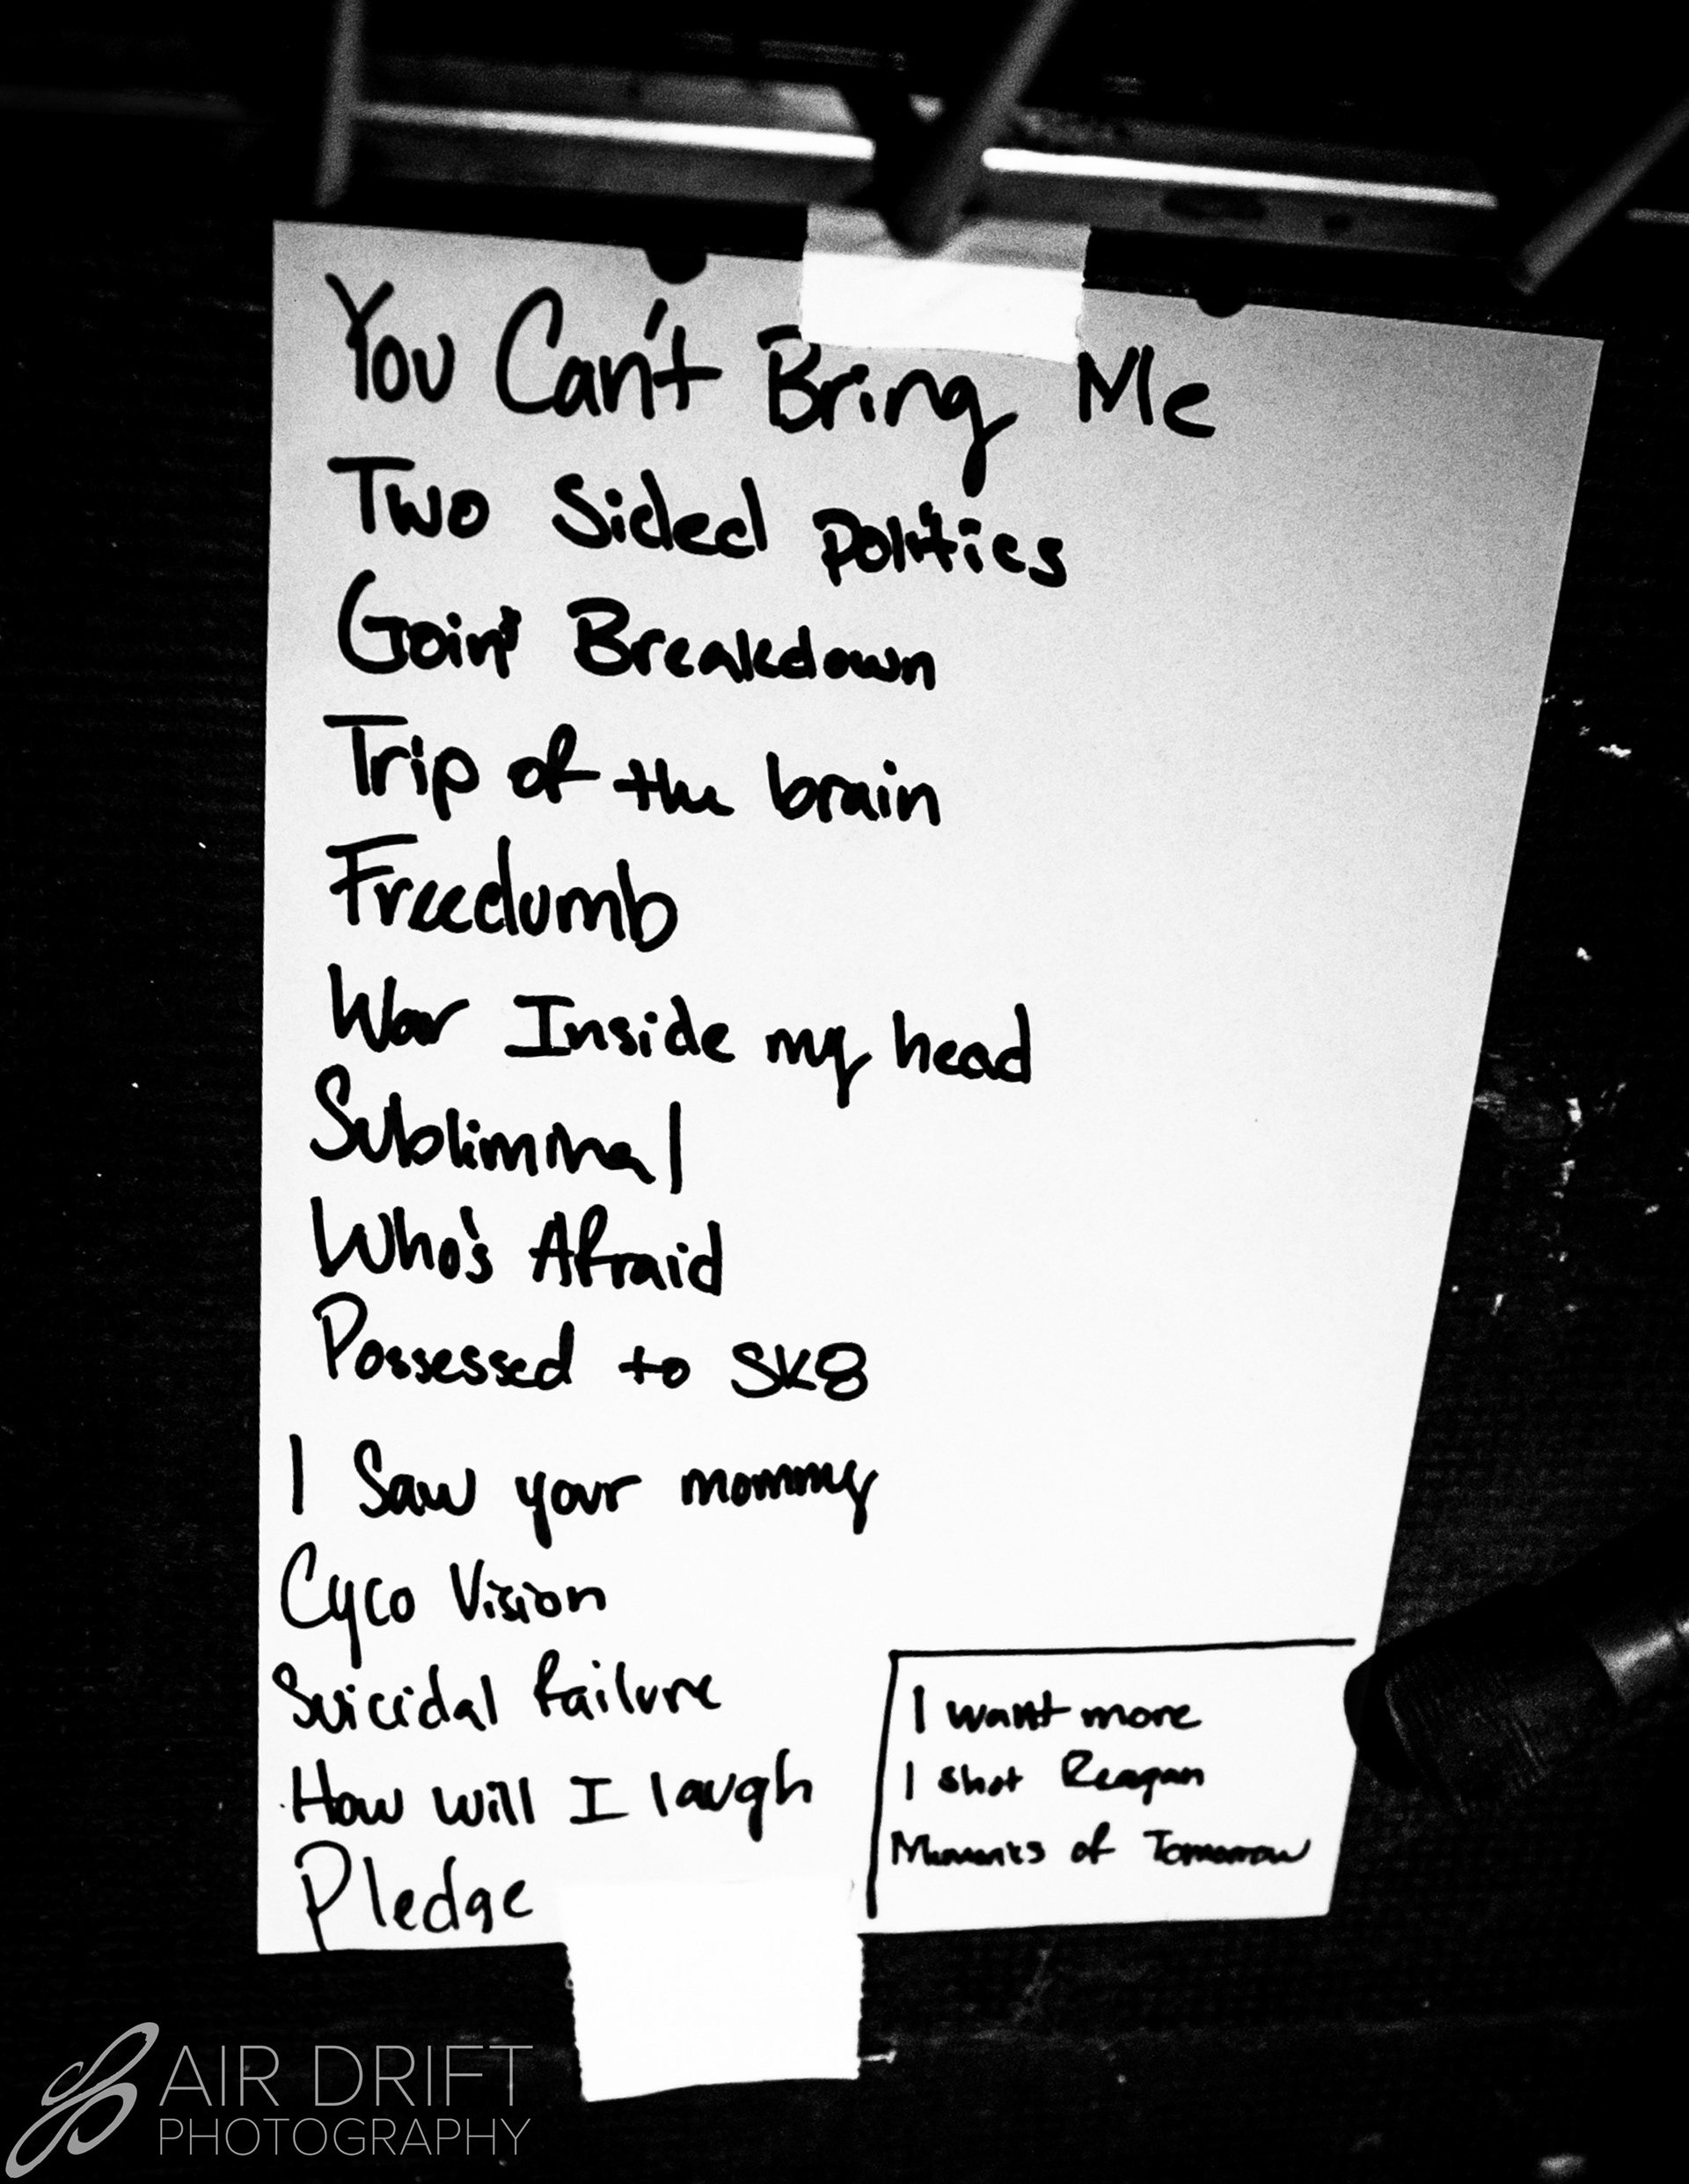 You Can't Bring Me
Two Sided Politics
Goin' Breakdown
Trip of the brain
Freedumb
War Inside my head
Subliminal
Who's Afraid
Possessed to SK8
I Saw your mommy
Cyco Vision
Suicidal failure
How will I laugh
Pledge
I want more
I shot Reagan
Memories of Tomorrow
AIR DRIFT
PHOTOGRAPHY